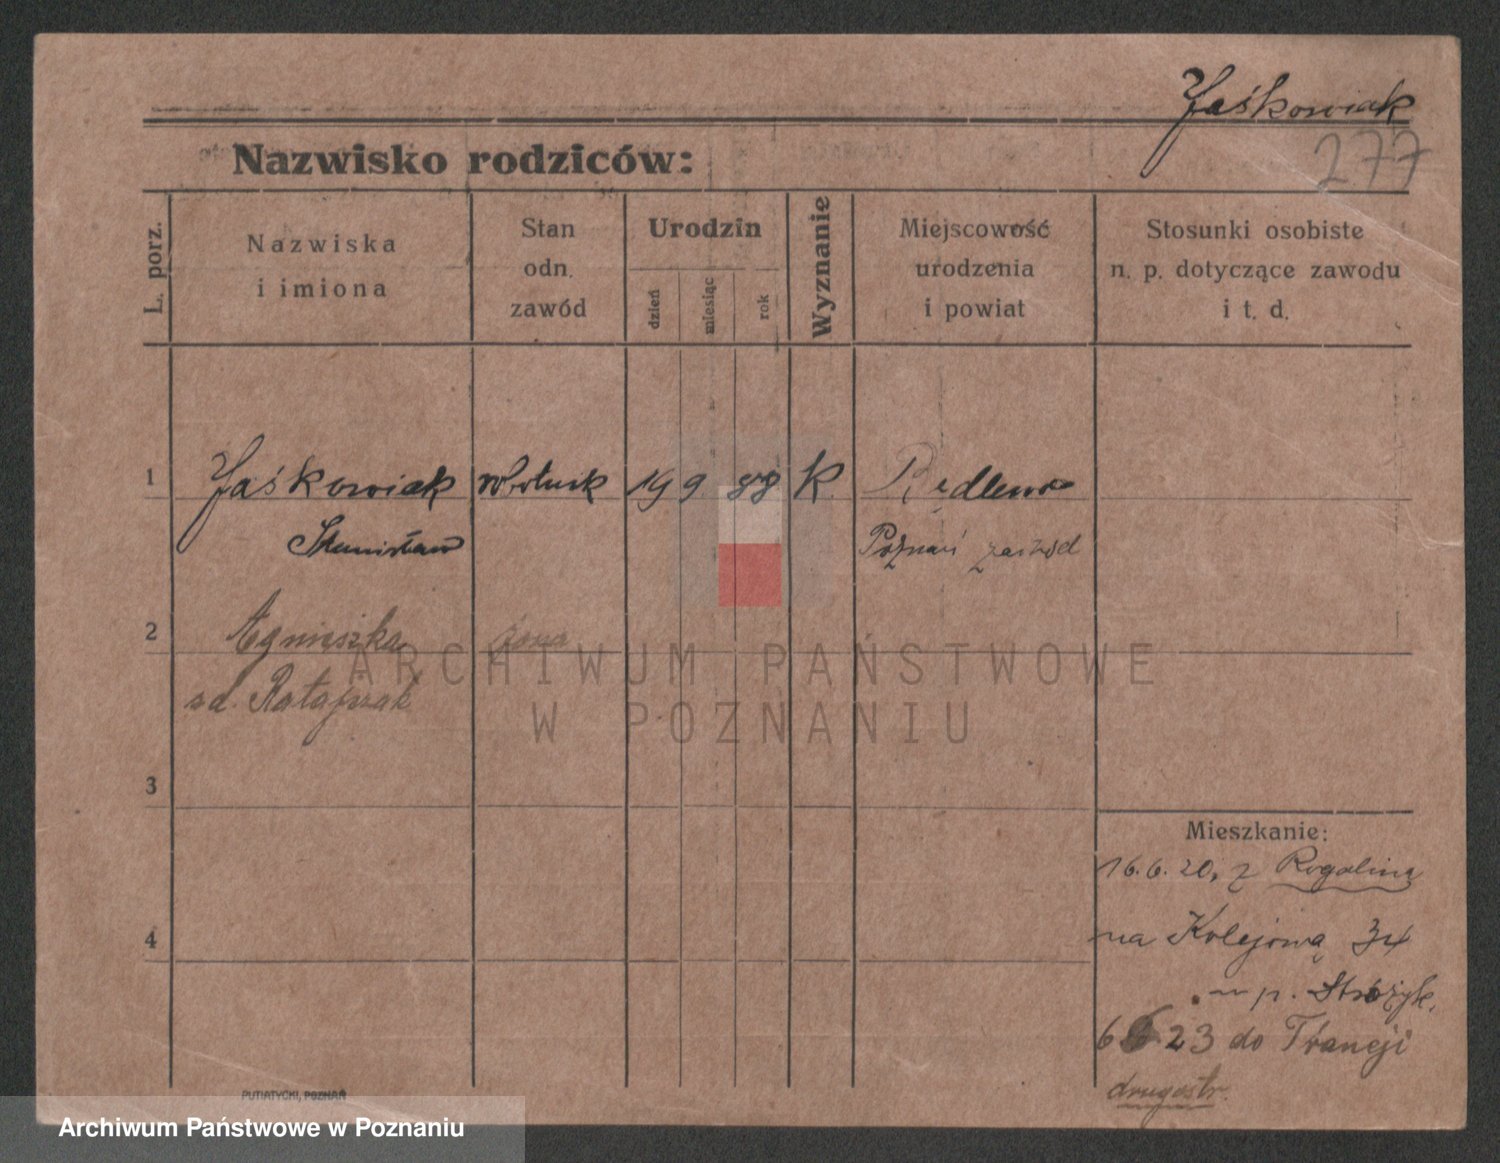 Jaśkowiak
277
Nazwisko rodziców:
L. porz.
Nazwiska
i imiona
Stan
odn.
zawód
Urodzin
dzień
miesiąc
rok
Wyznanie
Miejscowość
urodzenia
i powiat
Stosunki osobiste
n. p. dotyczące zawodu
i t. d.
1 Jaśkowiak robotnik 19 9 88 k.
Stanisław Poznań zachód
2 Agnieszka żona
zd. Ratajczak
3
4
Mieszkanie:
16.6.20, z Rogalina
na Kolejową 34
p. Stróżyk.
6 6 23 do Francji
drugostr.
PUTIATYCKI, POZNAŃ
ARCHIWUM PAŃSTWOWE
W POZNANIU
Archiwum Państwowe w Poznaniu